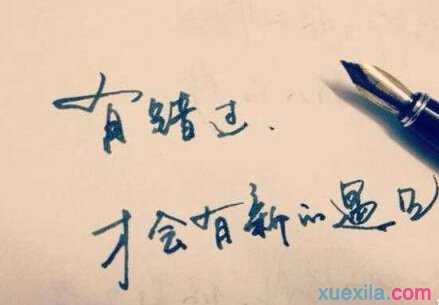 有错过.
才会有新的遇见
xuexila.com